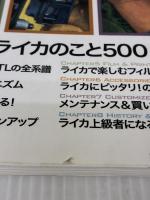 ライカのこと500
CHAPTER5 FILM & PRINT
TLの全系譜
ライカで楽しむフィル
CHAPTER6 ACCESSORIES
ニズム
ライカにピッタリ!の
CHAPTER7 CUSTOMIZE
る!
メンテナンス&買い
CHAPTER8 HISTORY &
ンアップ
ライカ上級者になる